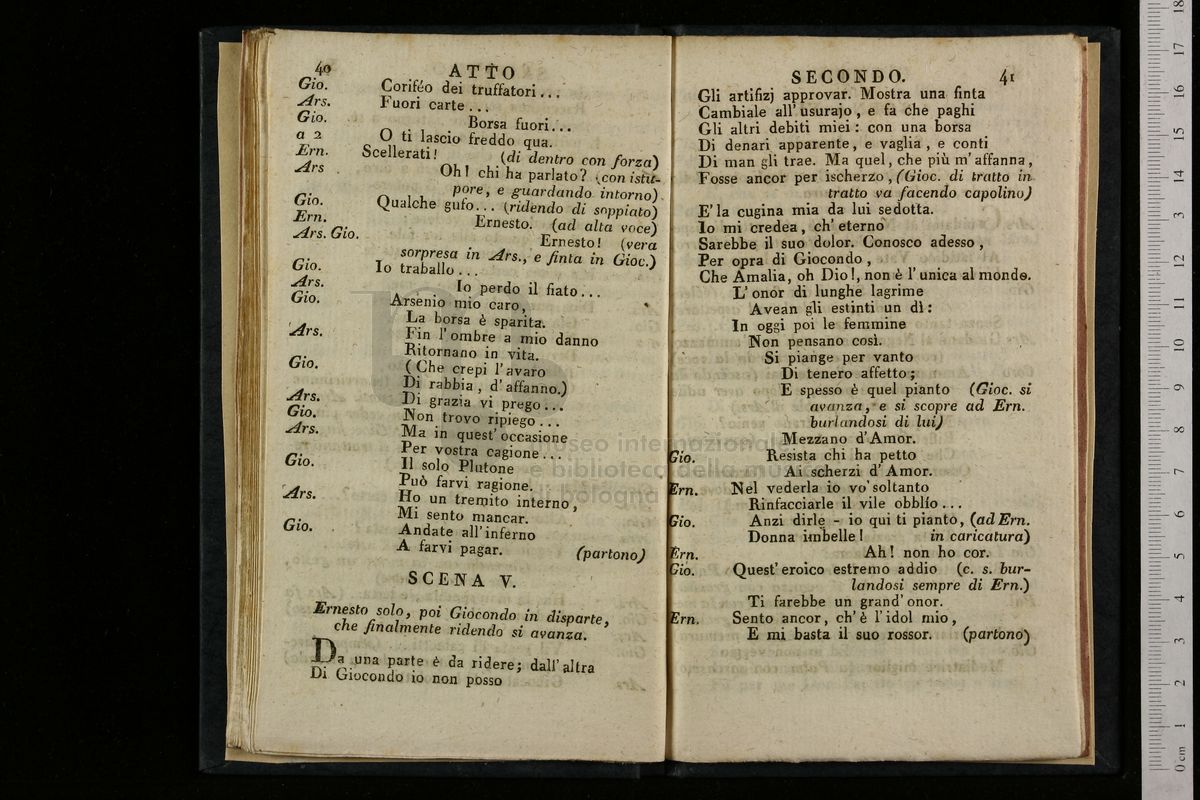 40 ATTO
Gio. Coriféo dei truffatori...
Ars. Fuori carte...
Gio. Borsa fuori...
a 2 O ti lascio freddo qua.
Ern. Scellerati! (di dentro con forza)
Ars Oh! chi ha parlato? (con istu-
pore, e guardando intorno)
Gio. Qualche gufo... (ridendo di soppiato)
Ern. Ernesto. (ad alta voce)
Ars. Gio. Ernesto! (vera
sorpresa in Ars., e finta in Gioc.)
Gio. Io traballo...
Ars. Io perdo il fiato...
Gio. Arsenio mio caro,
La borsa è sparita.
Ars. Fin l'ombre a mio danno
Ritornano in vita.
Gio. (Che crepi l'avaro
Di rabbia, d'affanno.)
Ars. Di grazia vi prego...
Gio. Non trovo ripiego...
Ars. Ma in quest'occasione
Per vostra cagione...
Gio. Il solo Plutone
Può farvi ragione.
Ars. Ho un tremito interno,
Mi sento mancar.
Gio. Andate all'inferno
A farvi pagar. (partono)
SCENA V.
Ernesto solo, poi Giocondo in disparte,
che finalmente ridendo si avanza.
Da una parte è da ridere; dall'altra
Di Giocondo io non posso
SECONDO. 41
Gli artifizj approvar. Mostra una finta
Cambiale all'usurajo, e fa che paghi
Gli altri debiti miei: con una borsa
Di denari apparente, e vaglia, e conti
Di man gli trae. Ma quel, che più m'affanna,
Fosse ancor per ischerzo, (Gioc. di tratto in
tratto va facendo capolino)
E' la cugina mia da lui sedotta.
Io mi credea, ch'eterno
Sarebbe il suo dolor. Conosco adesso,
Per opra di Giocondo,
Che Amalia, oh Dio!, non è l'unica al mondo.
L'onor di lunghe lagrime
Avean gli estinti un dì:
In oggi poi le femmine
Non pensano così.
Si piange per vanto
Di tenero affetto;
E spesso è quel pianto (Gioc. si
avanza, e si scopre ad Ern.
burlandosi di lui)
Mezzano d'Amor.
Gio. Resista chi ha petto
Ai scherzi d'Amor.
Ern. Nel vederla io vo' soltanto
Rinfacciarle il vile obblìo...
Gio. Anzi dirle - io qui ti pianto, (ad Ern.
Donna imbelle! in caricatura)
Ern. Ah! non ho cor.
Gio. Quest'eroico estremo addio (c. s. bur-
landosi sempre di Ern.)
Ti farebbe un grand'onor.
Ern. Sento ancor, ch'è l'idol mio,
E mi basta il suo rossor. (partono)
museo internazionale
e biblioteca della musica
di bologna
0 cm 1 2 3 4 5 6 7 8 9 10 11 12 13 14 15 16 17 18